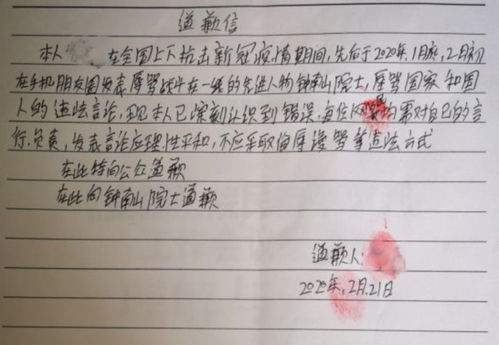 道歉信
本人 在全国上下抗击新冠疫情期间,先后于2020年1月底,2月初
在手机朋友圈发表辱骂战斗在一线的先进人物钟南山院士,辱骂国家和国
人的违法言论,现本人已深刻认识到错误,每位 均需对自己的言
行负责,发表言论应理性平和,不应采取侮辱谩骂等违法方式
在此特向公众道歉
在此向钟南山院士道歉
道歉人:
2020年,2月.21日